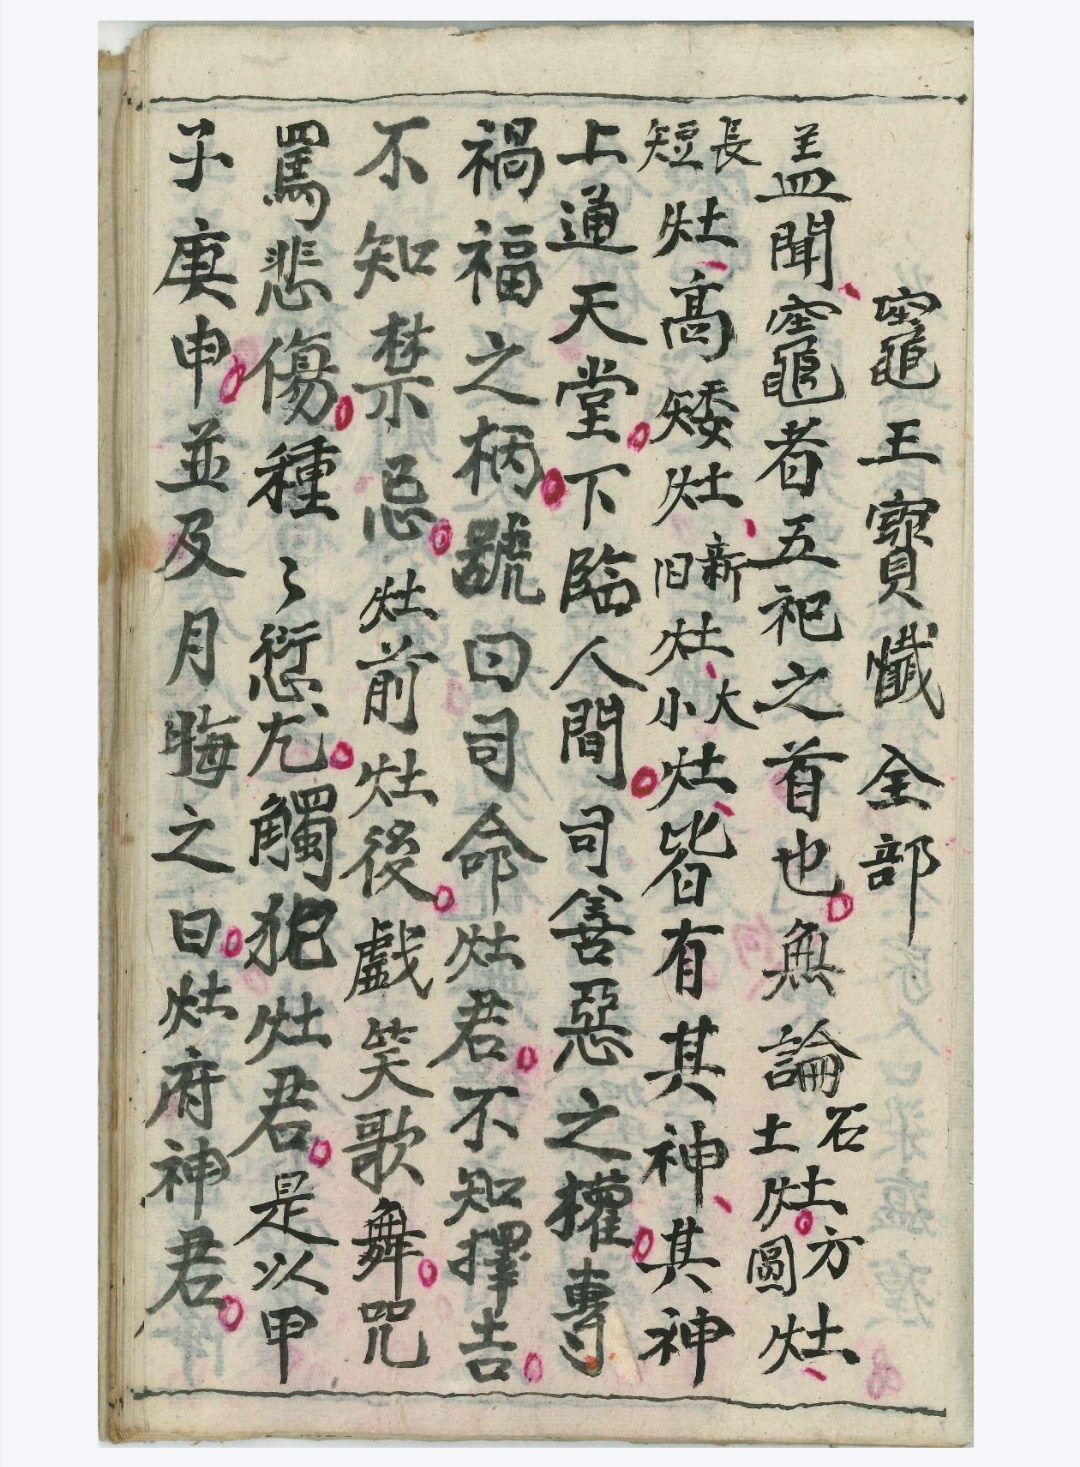 竈王寳懺 全部
盖聞竈者五祀之首也無論石土灶方圓灶
長短灶高矮灶新旧灶大小灶皆有其神其神
上通天堂下臨人間司善惡之權專
禍福之柄號曰司命灶君不知擇吉
不知禁忌灶前灶後戲笑歌舞咒
罵悲傷種〻愆尤觸犯灶君是以甲
子庚申並及月晦之日灶府神君